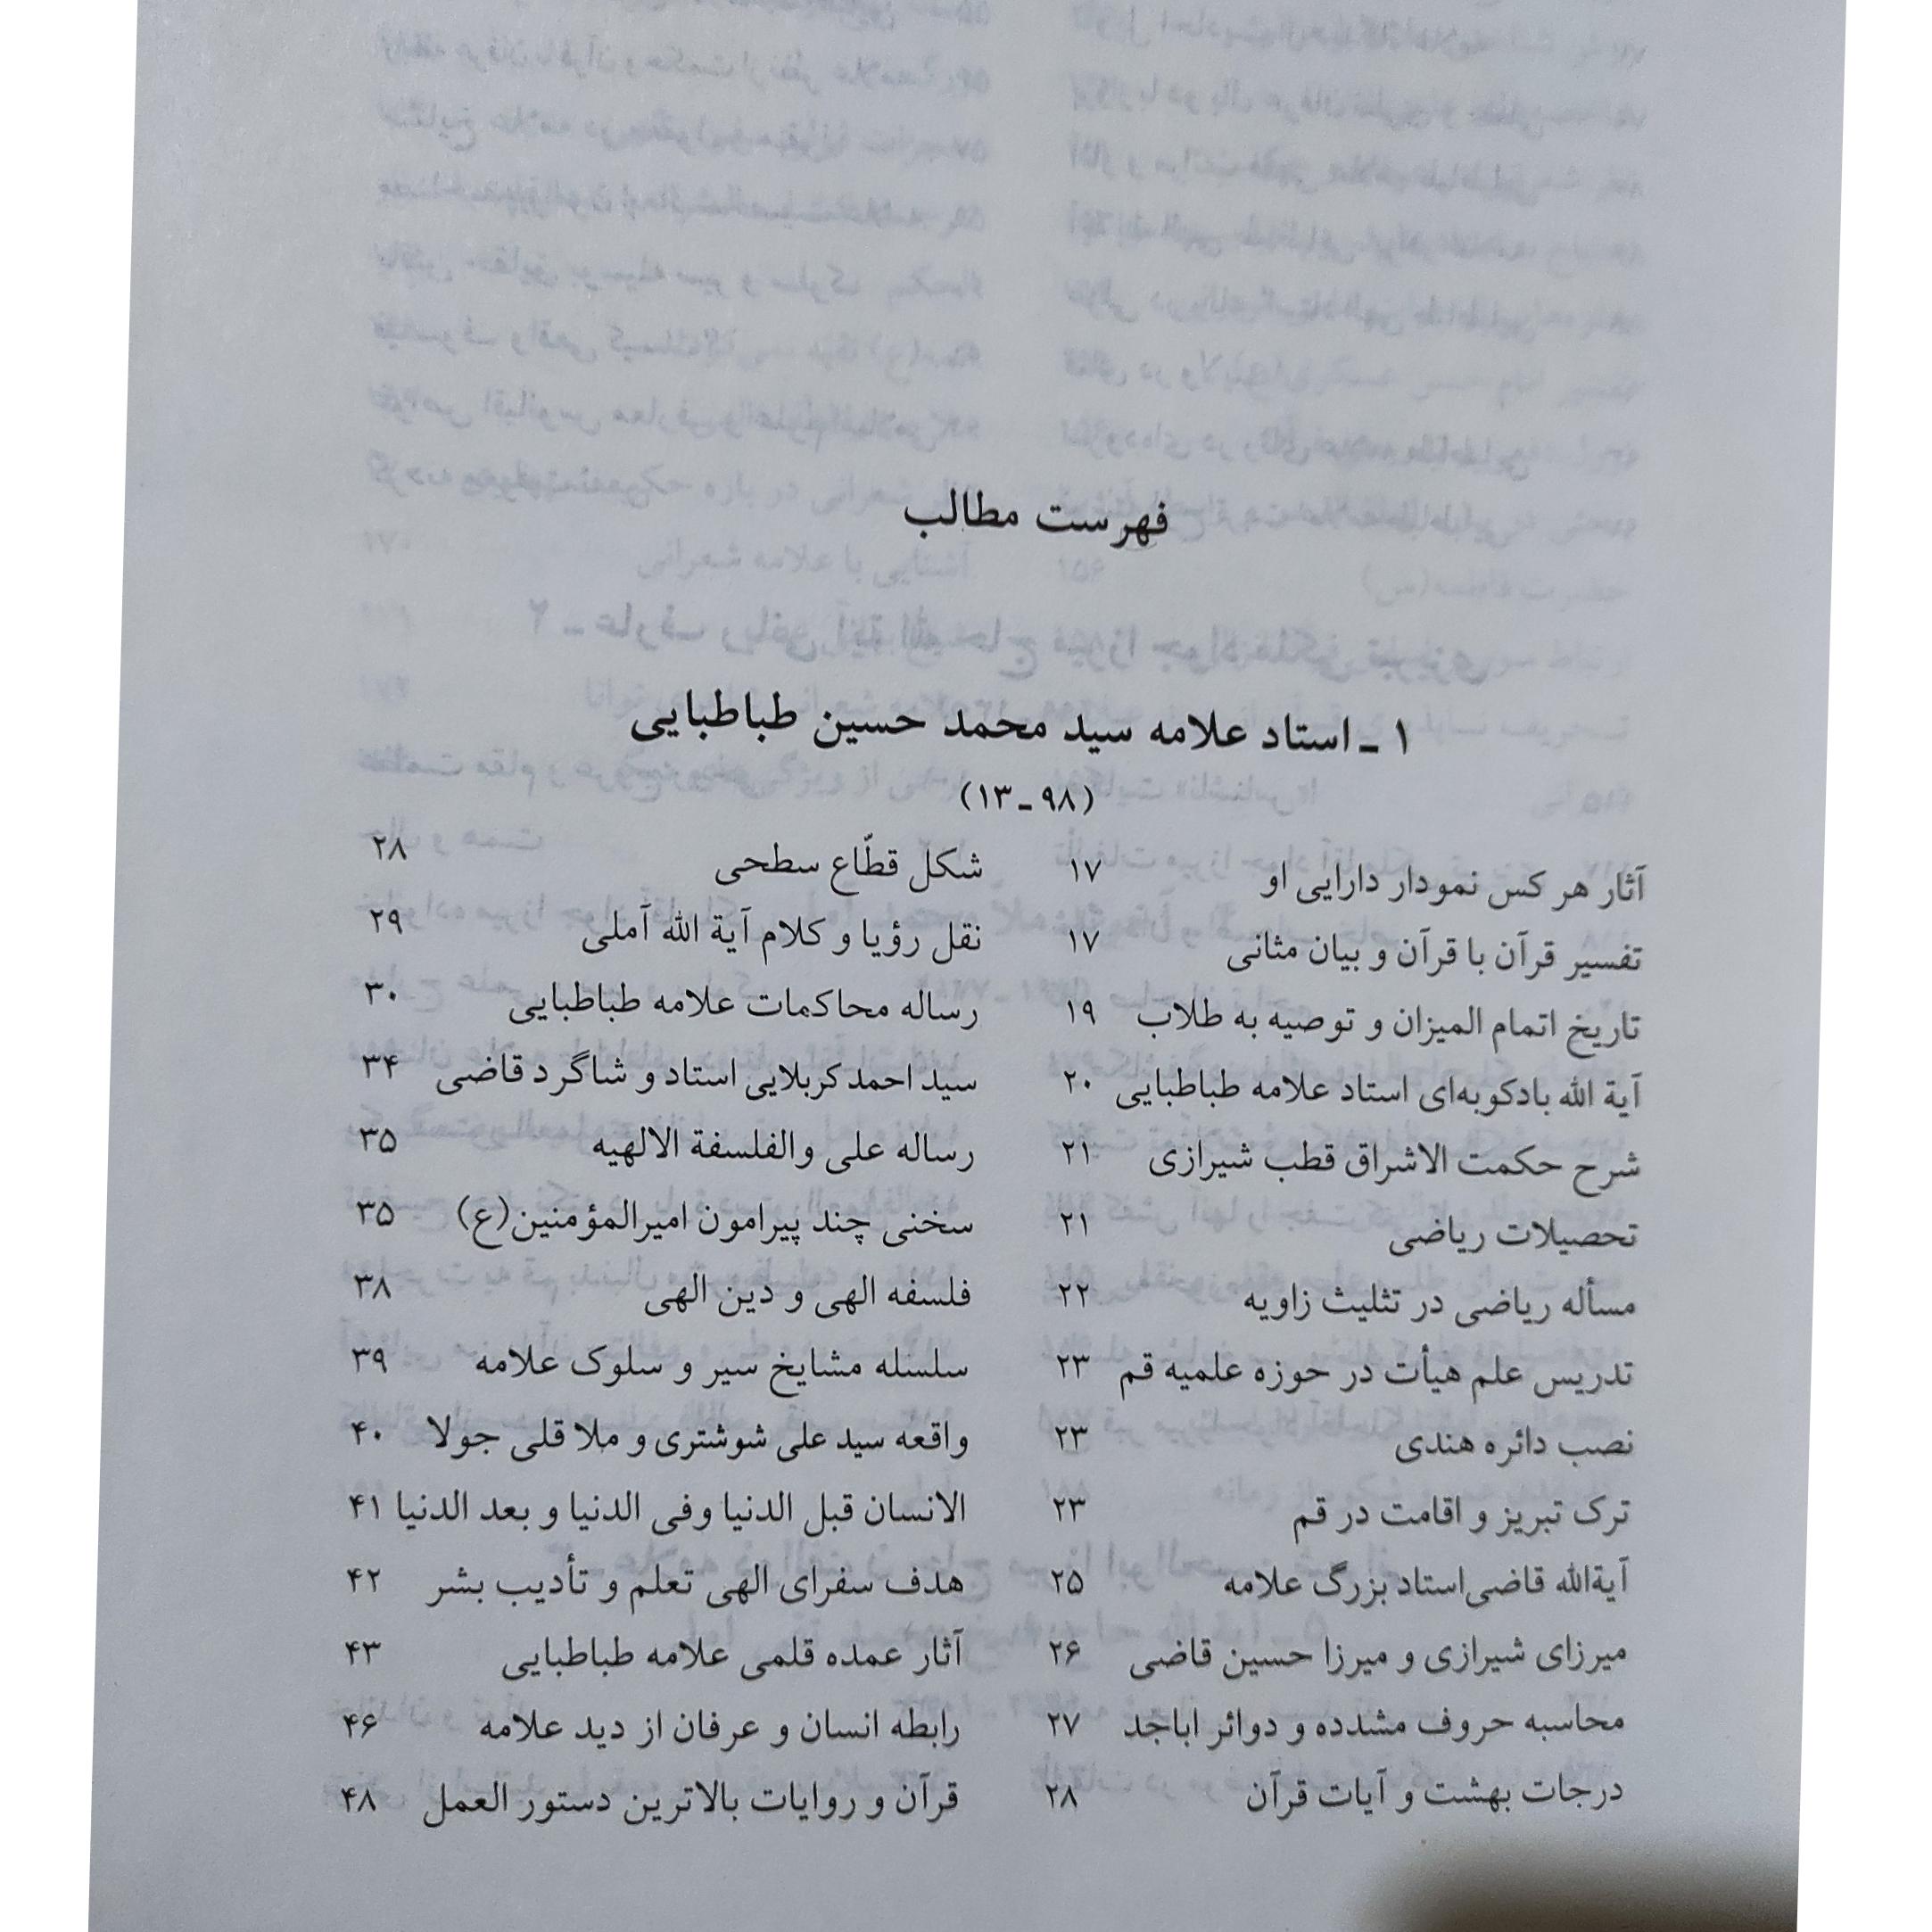 فهرست مطالب
۱ ـ استاد علامه سید محمد حسین طباطبایی
(۹۸ ـ ۱۳)
آثار هر کس نمودار دارایی او ۱۷
تفسیر قرآن با قرآن و بیان مثانی ۱۷
تاریخ اتمام المیزان و توصیه به طلاب ۱۹
آیة الله بادکوبه‌ای استاد علامه طباطبایی ۲۰
شرح حکمت الاشراق قطب شیرازی ۲۱
تحصیلات ریاضی ۲۱
مسأله ریاضی در تثلیث زاویه ۲۲
تدریس علم هیأت در حوزه علمیه قم ۲۳
نصب دائره هندی ۲۳
ترک تبریز و اقامت در قم ۲۳
آیةالله قاضی‌استاد بزرگ علامه ۲۵
میرزای شیرازی و میرزا حسین قاضی ۲۶
محاسبه حروف مشدده و دوائر اباجد ۲۷
درجات بهشت و آیات قرآن ۲۸
شکل قطّاع سطحی ۲۸
نقل رؤیا و کلام آیة الله آملی ۲۹
رساله محاکمات علامه طباطبایی ۳۰
سید احمد کربلایی استاد و شاگرد قاضی ۳۴
رساله علی والفلسفة الالهیه ۳۵
سخنی چند پیرامون امیرالمؤمنین(ع) ۳۵
فلسفه الهی و دین الهی ۳۸
سلسله مشایخ سیر و سلوک علامه ۳۹
واقعه سید علی شوشتری و ملا قلی جولا ۴۰
الانسان قبل الدنیا وفی الدنیا و بعد الدنیا ۴۱
هدف سفرای الهی تعلم و تأدیب بشر ۴۲
آثار عمده قلمی علامه طباطبایی ۴۳
رابطه انسان و عرفان از دید علامه ۴۶
قرآن و روایات بالاترین دستور العمل ۴۸